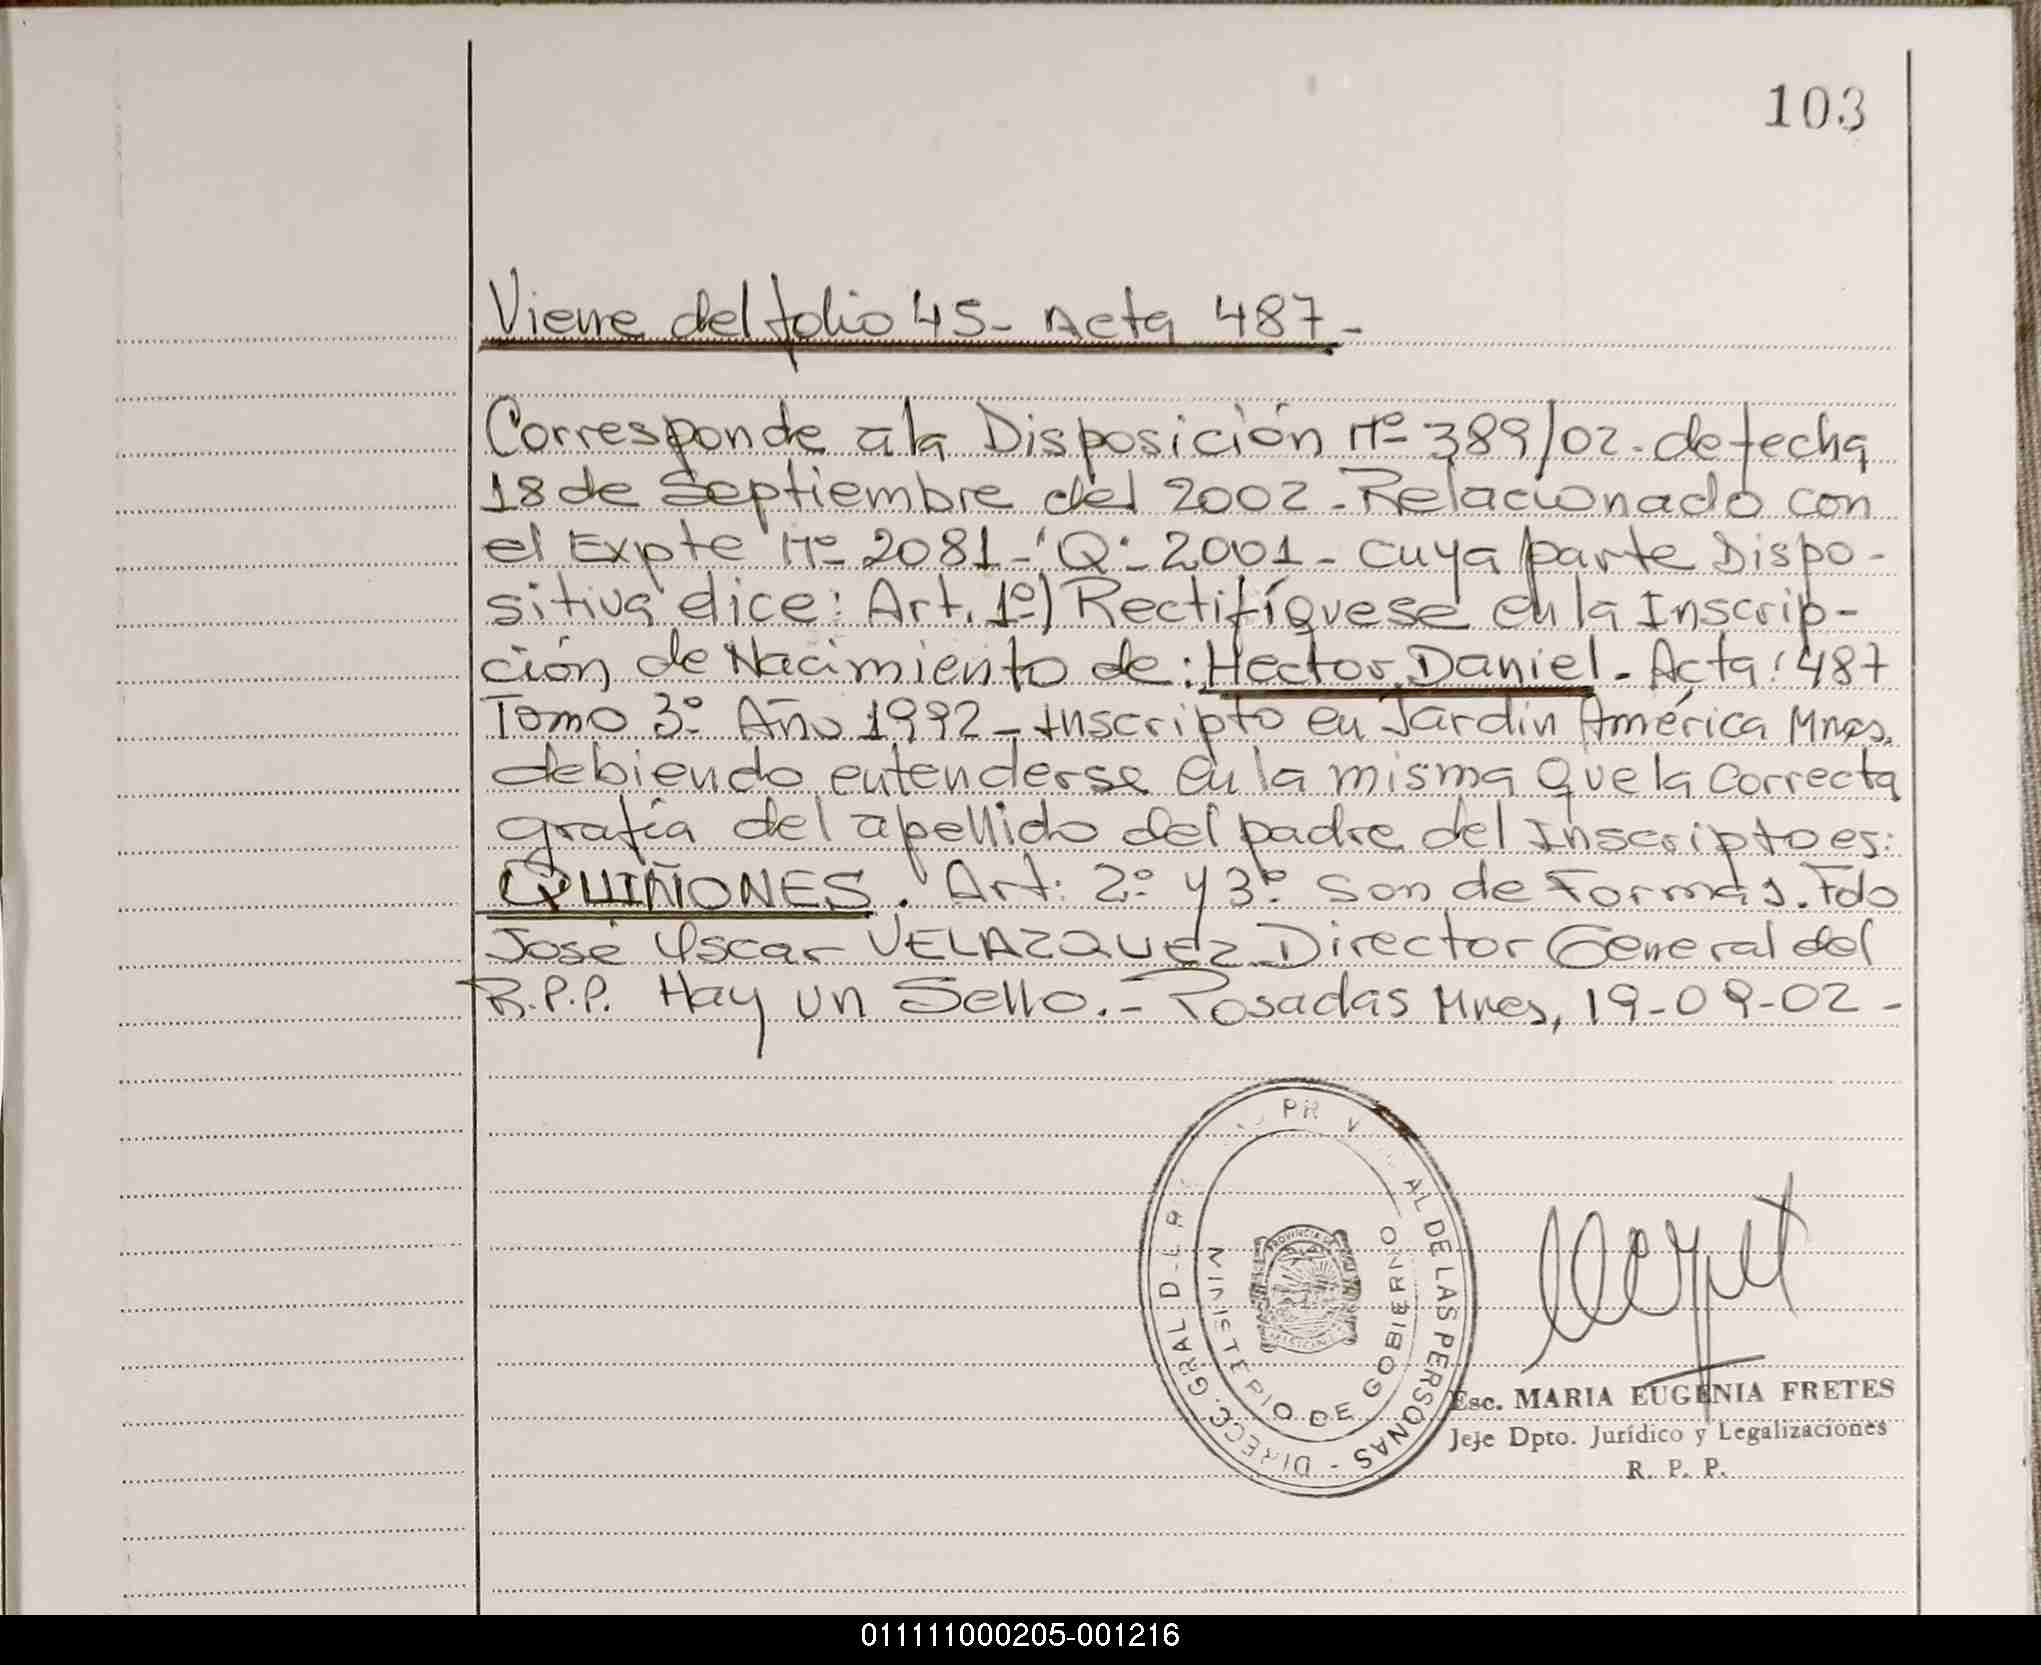 103
Viene del folio 45- Acta 487-
Corresponde a la Disposición Nº 389/02. de fecha
18 de Septiembre del 2002 - Relacionado con
el Expte Nº 2081-'Q'- 2001- cuya parte Dispo-
sitiva dice: Art. 1º) Rectifíquese en la Inscrip-
ción de Nacimiento de: Hector Daniel - Acta: 487
Tomo 3º Año 1992 - Inscripto en Jardín América Mnes.
debiendo entenderse en la misma que la correcta
grafía del apellido del padre del Inscripto es:
QUIÑONES. Art: 2º y 3º son de Forma). Fdo
José Oscar VELAZQUEZ. Director General del
R.P.P. Hay un Sello. - Posadas Mnes, 19-09-02-
DIRECC. GRAL D
AL DE LAS PERSONAS -
MINISTERIO DE GOBIERNO
Esc. MARIA EUGENIA FRETES
Jefe Dpto. Jurídico y Legalizaciones
R. P. P.
011111000205-001216